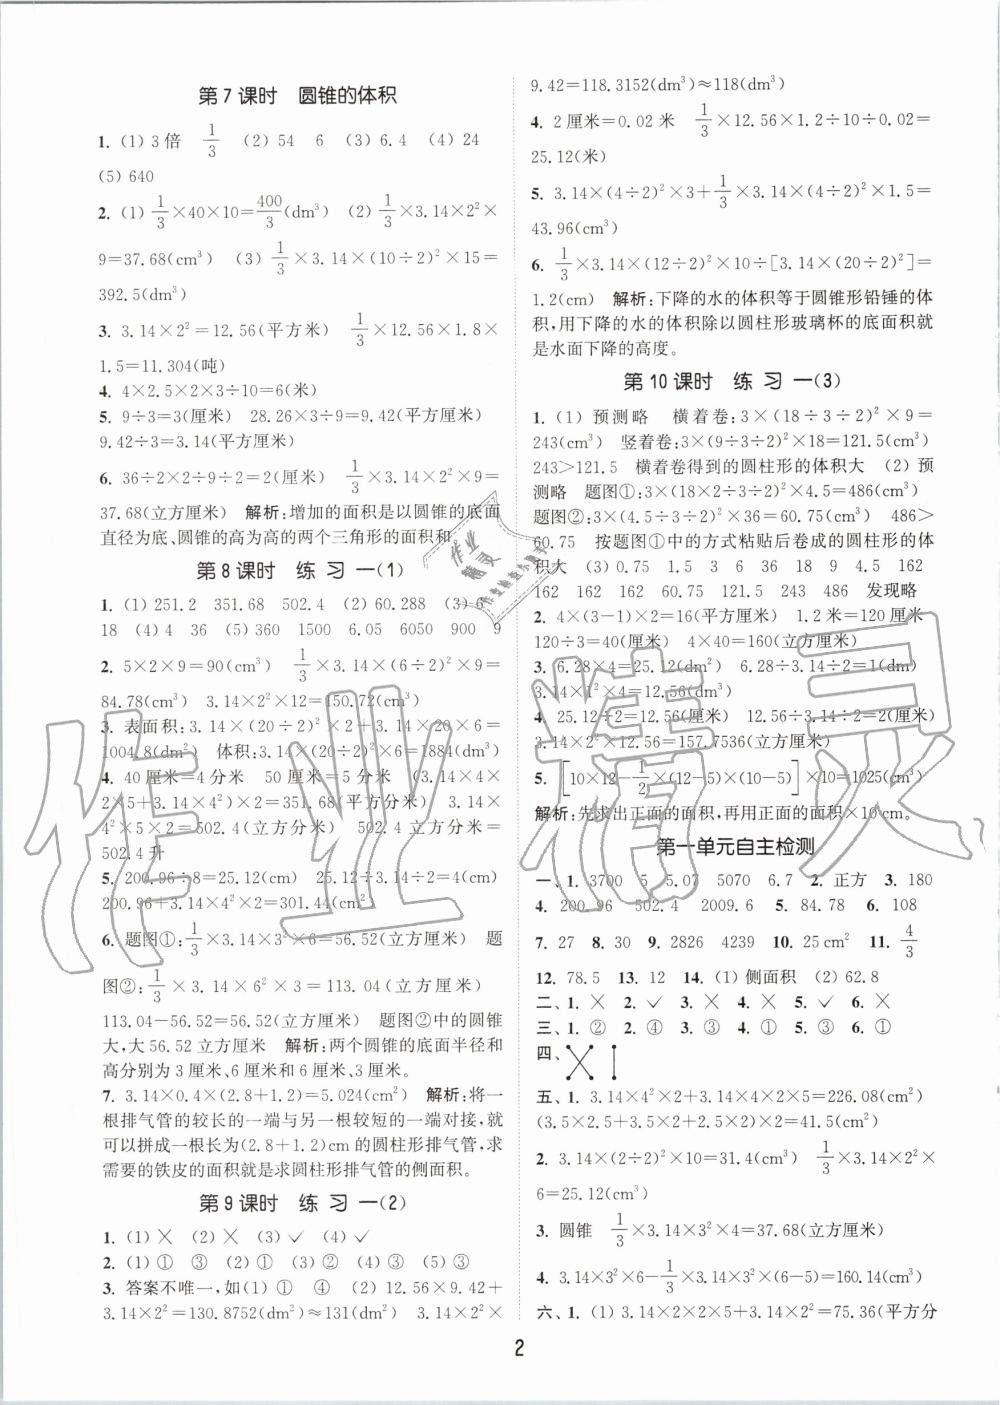 第7课时　圆锥的体积
1. (1)3倍　1/3　(2)54　6　(3)6.4　(4)24
(5)640
2. (1)1/3×40×10=400/3(dm³)　(2)1/3×3.14×2²×
9=37.68(cm³)　(3)1/3×3.14×(10÷2)²×15=
392.5(dm³)
3. 3.14×2²=12.56(平方米)　1/3×12.56×1.8×
1.5=11.304(吨)
4. 4×2.5×2×3÷10=6(分米)
5. 9÷3=3(厘米)　28.26×3÷9=9.42(平方厘米)
9.42÷3=3.14(平方厘米)
6. 36÷2×2÷9÷2=2(厘米)　1/3×3.14×2²×9=
37.68(立方厘米)　解析:增加的面积是以圆锥的底面
直径为底、圆锥的高为高的两个三角形的面积和。
第8课时　练 习 一(1)
1. (1)251.2　351.68　502.4　(2)60.288　(3)6
18　(4)4　36　(5)360　1500　6.05　6050　900　9
2. 5×2×9=90(cm³)　1/3×3.14×(6÷2)²×9=
84.78(cm³)　3.14×2²×12=150.72(cm³)
3. 表面积:3.14×(20÷2)²×2+3.14×20×6=
1004.8(dm²)　体积:3.14×(20÷2)²×6=1884(dm³)
4. 40厘米=4分米　50厘米=5分米　(3.14×4×
2×5+3.14×4²)×2=351.68(平方分米)　3.14×
4²×5×2=502.4(立方分米)　502.4立方分米=
502.4升
5. 200.96÷8=25.12(cm)　25.12÷3.14÷2=4(cm)
200.96+3.14×4²×2=301.44(cm²)
6. 题图①:1/3×3.14×3²×6=56.52(立方厘米)　题
图②:1/3×3.14×6²×3=113.04(立方厘米)
113.04-56.52=56.52(立方厘米)　题图②中的圆锥
大,大56.52立方厘米　解析:两个圆锥的底面半径和
高分别为3厘米、6厘米和6厘米、3厘米。
7. 3.14×0.4×(2.8+1.2)=5.024(cm²)　解析:将一
根排气管的较长的一端与另一根较短的一端对接,就
可以拼成一根长为(2.8+1.2)cm的圆柱形排气管,求
需要的铁皮的面积就是求圆柱形排气管的侧面积。
第9课时　练 习 一(2)
1. (1)×　(2)×　(3)✓　(4)✓
2. (1)①　③　(2)①　(3)②　(4)③　(5)③
3. 答案不唯一,如(1)①　④　(2)12.56×9.42+
3.14×2²=130.8752(dm²)≈131(dm²)　3.14×2²×
9.42=118.3152(dm³)≈118(dm³)
4. 2厘米=0.02米　1/3×12.56×1.2÷10÷0.02=
25.12(米)
5. 3.14×(4÷2)²×3+1/3×3.14×(4÷2)²×1.5=
43.96(cm³)
6. 1/3×3.14×(12÷2)²×10÷[3.14×(20÷2)²]=
1.2(cm)　解析:下降的水的体积等于圆锥形铅锤的体
积,用下降的水的体积除以圆柱形玻璃杯的底面积就
是水面下降的高度。
第10课时　练 习 一(3)
1. (1)预测略　横着卷:3×(18÷3÷2)²×9=
243(cm³)　竖着卷:3×(9÷3÷2)²×18=121.5(cm³)
243>121.5　横着卷得到的圆柱形的体积大　(2)预
测略　题图①:3×(18×2÷3÷2)²×4.5=486(cm³)
题图②:3×(4.5÷3÷2)²×36=60.75(cm³)　486>
60.75　按题图①中的方式粘贴后卷成的圆柱形的体
积大　(3)0.75　1.5　3　6　18　9　4.5　162
162　162　162　60.75　121.5　243　486　发现略
2. 4×(3-1)×2=16(平方厘米)　1.2米=120厘米
120÷3=40(厘米)　4×40=160(立方厘米)
3. 6.28×4=25.12(dm²)　6.28÷3.14÷2=1(dm)
3.14×1²×4=12.56(dm³)
4. 25.12÷2=12.56(厘米)　12.56÷3.14÷2=2(厘米)
3.14×2²×12.56=157.7536(立方厘米)
5. [10×12-1/2×(12-5)×(10-5)]×10=1025(cm³)
解析:先求出正面的面积,再用正面的面积×10cm。
第一单元自主检测
一、1. 3700　5　5.07　5070　6.7　2. 正方　3. 180
4. 200.96　502.4　2009.6　5. 84.78　6. 108
7. 27　8. 30　9. 2826　4239　10. 25cm²　11. 4/3
12. 78.5　13. 12　14. (1)侧面积　(2)62.8
二、1. ×　2. ✓　3. ×　4. ×　5. ✓　6. ×
三、1. ②　2. ④　3. ③　4. ①　5. ③　6. ①
四、
五、1. 3.14×4²×2+3.14×4×2×5=226.08(cm²)
(3.5×2.5+3.5×2+2.5×2)×2=41.5(cm²)
2. 3.14×(2÷2)²×10=31.4(cm³)　1/3×3.14×2²×
6=25.12(cm³)
3. 圆锥　1/3×3.14×3²×4=37.68(立方厘米)
4. 3.14×3²×6-1/3×3.14×3²×(6-5)=160.14(cm³)
六、1. (1)3.14×2×2×5+3.14×2²=75.36(平方分
2
作业精灵